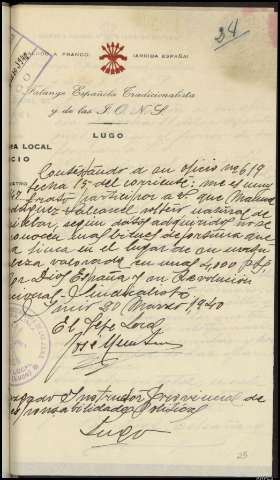 24
SALUDO A FRANCO: ¡ARRIBA ESPAÑA!
Falange Española Tradicionalista
y de las J. O. N. S.
LUGO
LOCAL
Contestando a su oficio nº 619
fecha 15 del corriente; me es muy
grato participar a V. que Manuel
soltero, natural de
según datos adquiridos no se
conocen mas bienes de fortuna que
finca en el lugar de
valorada en unas 4,000 ptas
Por Dios España y su Revolución
Nacional-Sindicalista
20 Marzo 1940
El Jefe Local
José
Juzgado Instructor Provincial de
Responsabilidades Políticas
Lugo
25